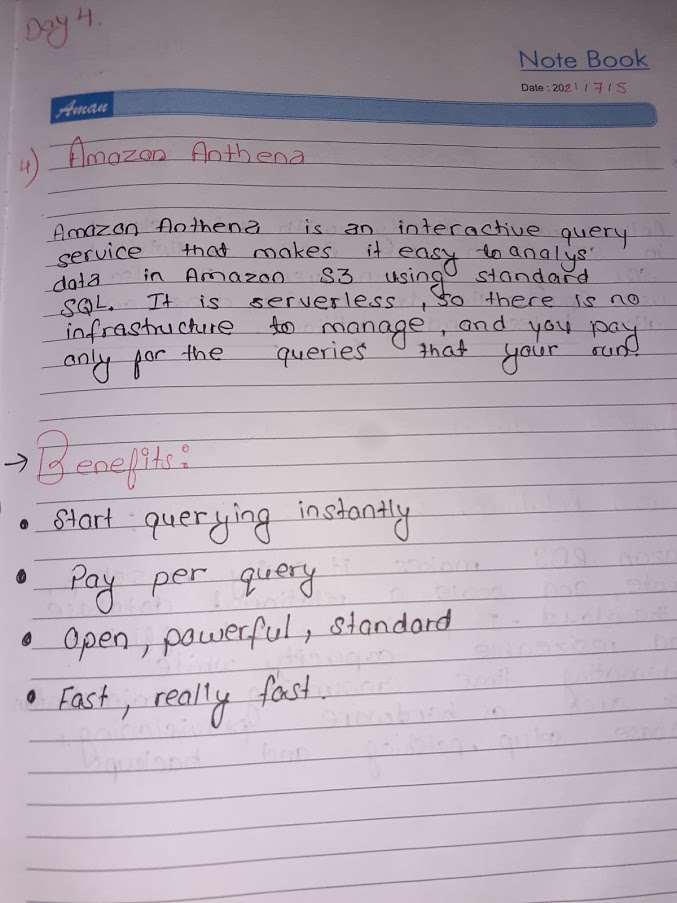 Day 4.
Note Book
Date : 2021 / 7 / 5
Aman
4) Amazon Anthena
Amazon Anthena is an interactive query
service that makes it easy to analys
data in Amazon S3 using standard
SQL. It is serverless, so there is no
infrastructure to manage, and you pay
only for the queries that your run.
→ Benefits:
• Start querying instantly
• Pay per query
• Open, powerful, standard
• Fast, really fast.